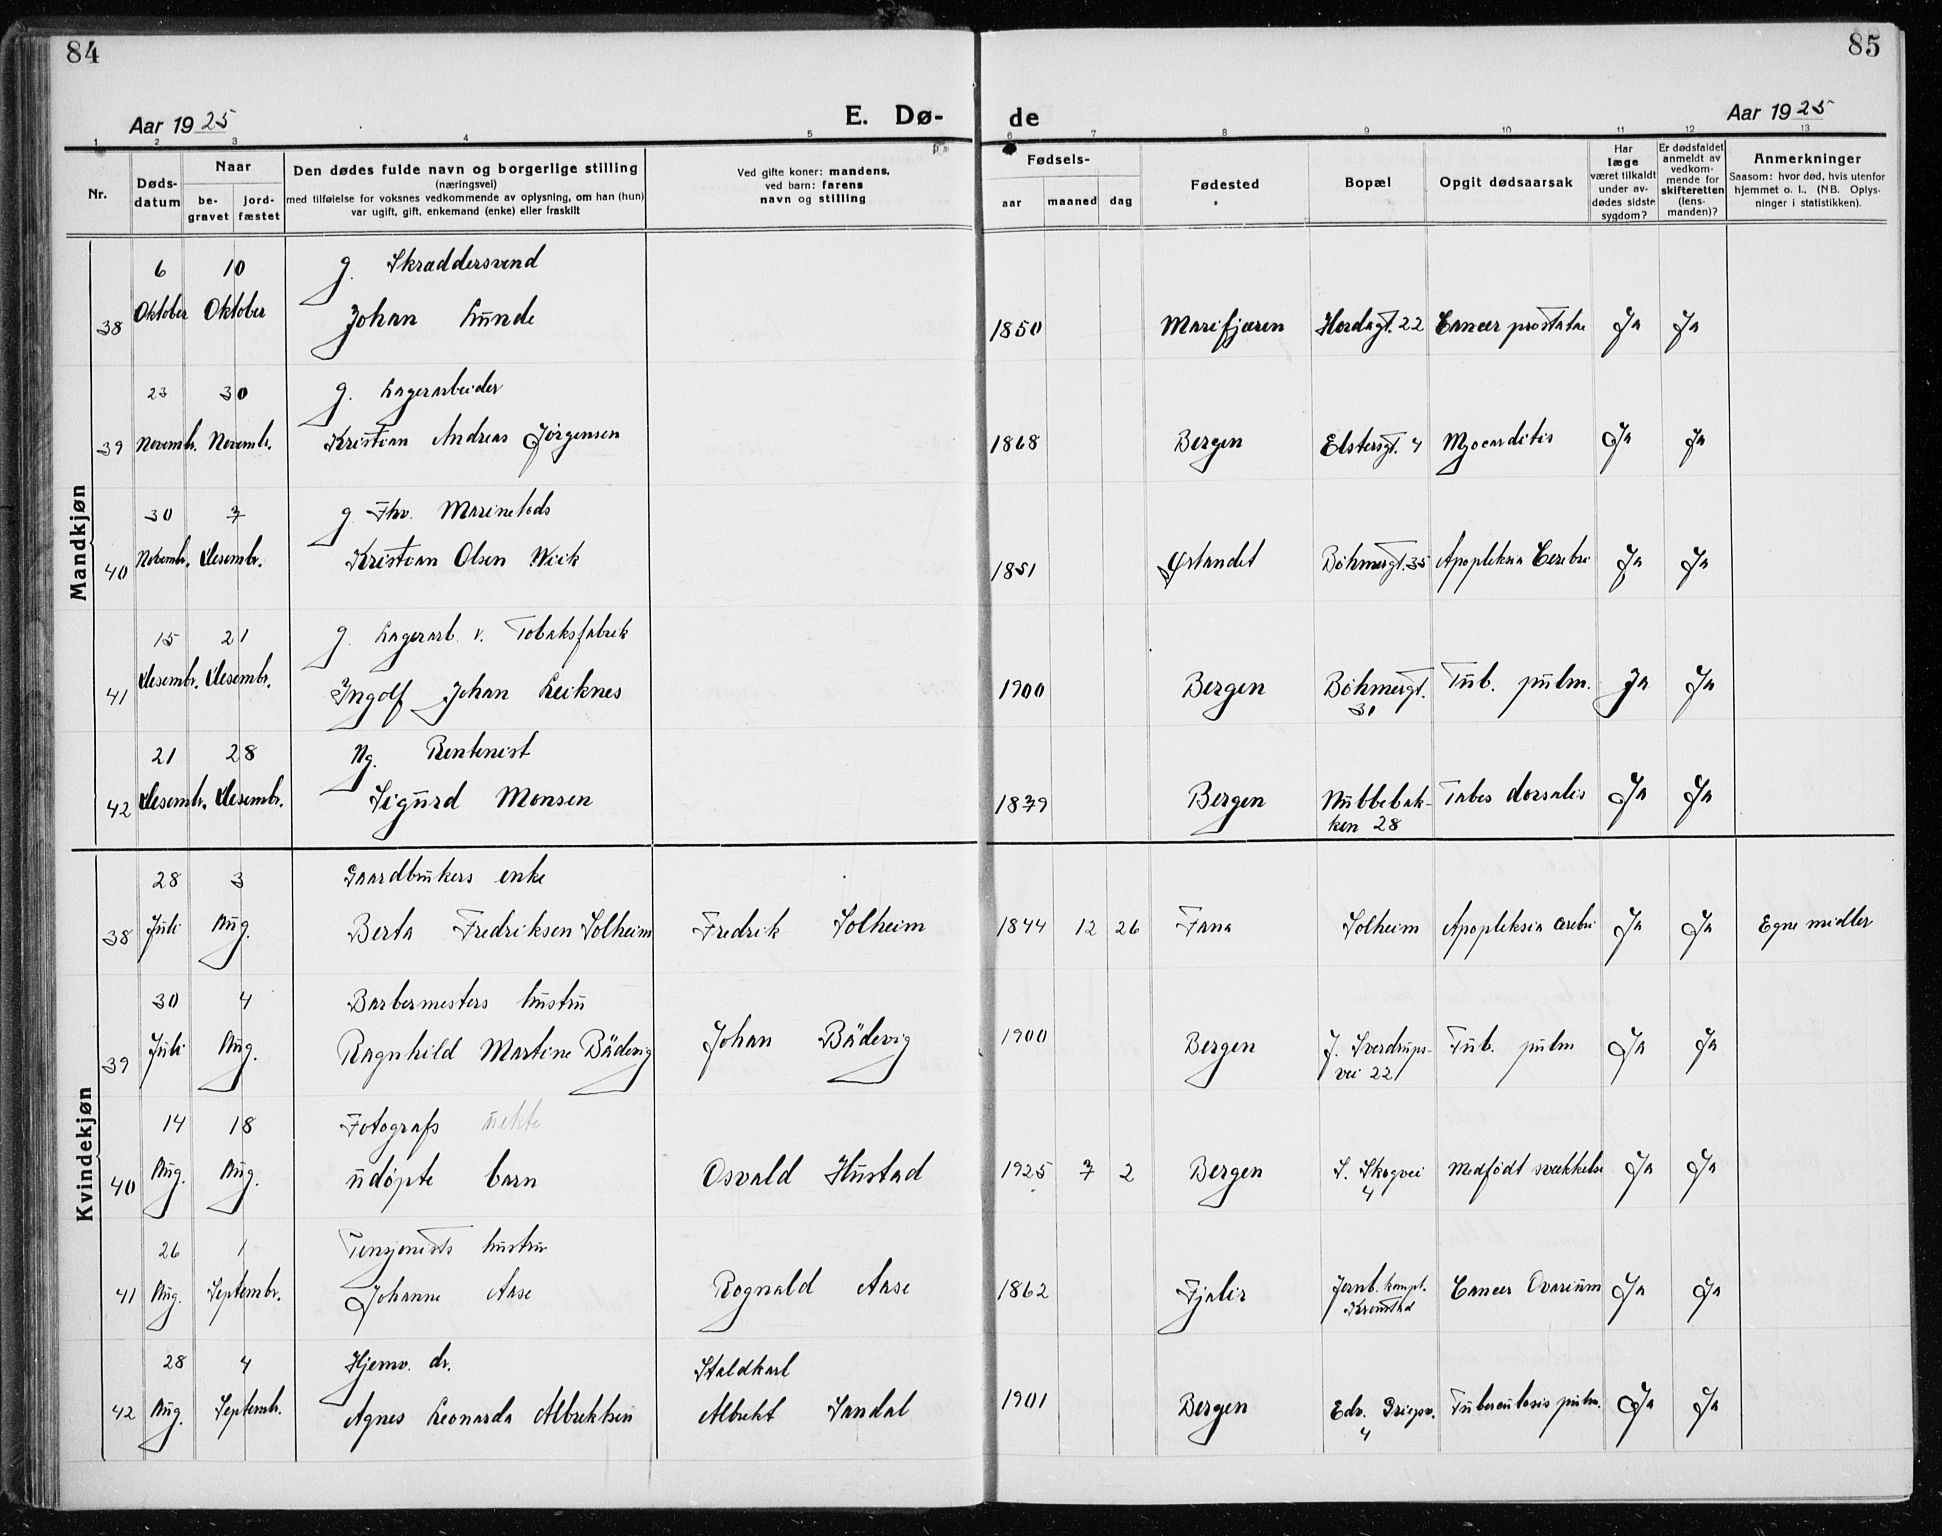 84
85
Aar 1925
E. Dø-
de
Aar 1925
1 2 3 4 5 6 7 8 9 10 11 12 13
Nr.
Døds-
datum
Naar
be-
gravet
jord-
fæstet
Den dødes fulde navn og borgerlige stilling
(næringsvei)
med tilføielse for voksnes vedkommende av oplysning, om han (hun)
var ugift, gift, enkemand (enke) eller fraskilt
Ved gifte koner: mandens,
ved barn: farens
navn og stilling
Fødsels-
aar maaned dag
Fødested
Bopæl
Opgit dødsaarsak
Har
læge
været tilkaldt
under av-
dødes sidste
sygdom?
Er dødsfaldet
anmeldt av
vedkom-
mende for
skifteretten
(lens-
manden)?
Anmerkninger
Saasom: hvor død, hvis utenfor
hjemmet o. l., (NB. Oplys-
ninger i statistikken).
Mandkjøn
6 10 g. Skraddersvend
38 Oktober Oktober Johan Lunde 1850 Marifjæren Hordagt. 22 Cancer prostatae Ja Ja
23 30 g. Lagerarbeider
39 Novembr. Novembr. Kristian Andreas Jørgensen 1868 Bergen Elstersgt. 4 Myocarditis Ja Ja
30 7 g. Fhv. Marinelods
40 Novembr. Desembr. Kristian Olsen Wiik 1851 Ørlandet Bøhmergt. 35 Apopleksia Cerebri Ja Ja
15 21 g. Lagerarb. v. Tobaksfabrik
41 Desembr. Desembr. Ingolf Johan Leiknes 1900 Bergen Bøhmergt. Tub. pulm. Ja Ja
31
21 28 Ug. Rentenist
42 Desembr. Desembr. Sigurd Monsen 1879 Bergen Nubbebak- Tabes dorsalis Ja Ja
ken 28
Kvindekjøn
28 3 Gaardbrukers enke
38 Juli Aug. Berta Fredriksen Solheim Fredrik Solheim 1844 12 26 Fana Solheim Apopleksia cerebri Ja Ja Egne midler
30 4 Barbermesters hustru
39 Juli Aug. Ragnhild Martine Bädevig Johan Bädevig 1900 Bergen J. Sverdrups- Tub. pulm Ja Ja
vei 22
14 18 Fotografs uekte
40 Aug. Aug. udøpte barn Osvald Hustad 1925 7 2 Bergen S. Skogvei Medfødt svækkelse Ja Ja
4
26 1 Pensjonists hustru
41 Aug. Septembr. Johanne Aase Rognald Aase 1862 Fjaler Jernb. kompl. Cancer Ovarium Ja Ja
Kronstad
28 4 Hjemv. dr. Staldkarl
42 Aug. Septembr. Agnes Leonarda Albrektsen Albrekt Sandal 1901 Bergen Edv. Griegsv. Tuberculosis pulm. Ja Ja
4